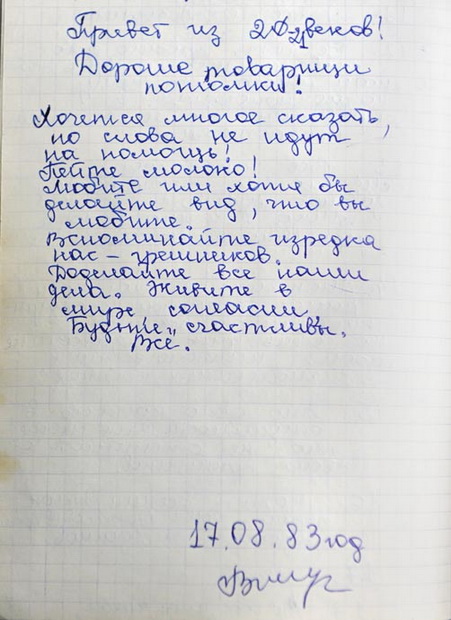 Привет из 20-21 веков!
Дорогие товарищи
потомки!
Хочется многое сказать,
но слова не идут
на помощь!
Пейте молоко!
Любите или хотя бы
делайте вид, что вы
любите.
Вспоминайте изредка
нас – грешников.
Доделайте все наши
дела. Живите в
мире, согласии.
Будьте счастливы.
Все.
17.08.83 год